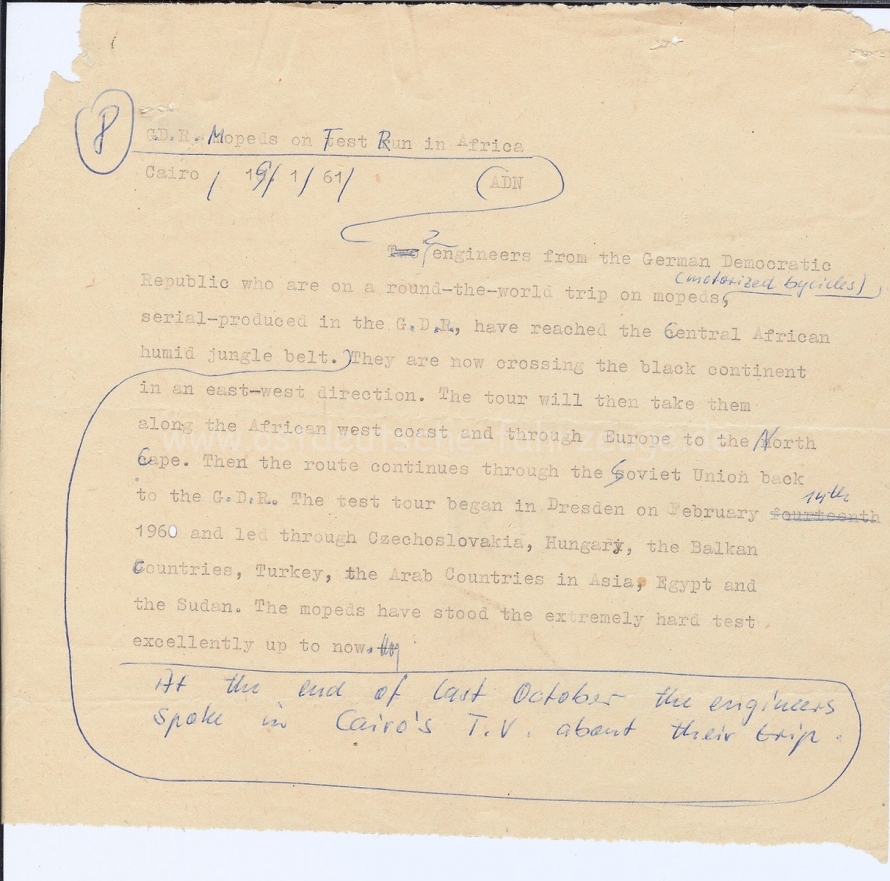 8
G.D.R. Mopeds on Test Run in Africa
Cairo / 19/ 1/ 61/ (ADN
Two 2 engineers from the German Democratic
(motorized bycicles)
Republic who are on a round-the-world trip on mopeds,
serial-produced in the G.D.R., have reached the Central African
humid jungle belt. They are now crossing the black continent
in an east-west direction. The tour will then take them
along the African west coast and through Europe to the North
Cape. Then the route continues through the Soviet Union back
14th
to the G.D.R. The test tour began in Dresden on February fourteenth
1960 and led through Czechoslovakia, Hungary, the Balkan
Countries, Turkey, the Arab Countries in Asia, Egypt and
the Sudan. The mopeds have stood the extremely hard test
excellently up to now.
At the end of last October the engineers
spoke in Cairo's T.V. about their trip.